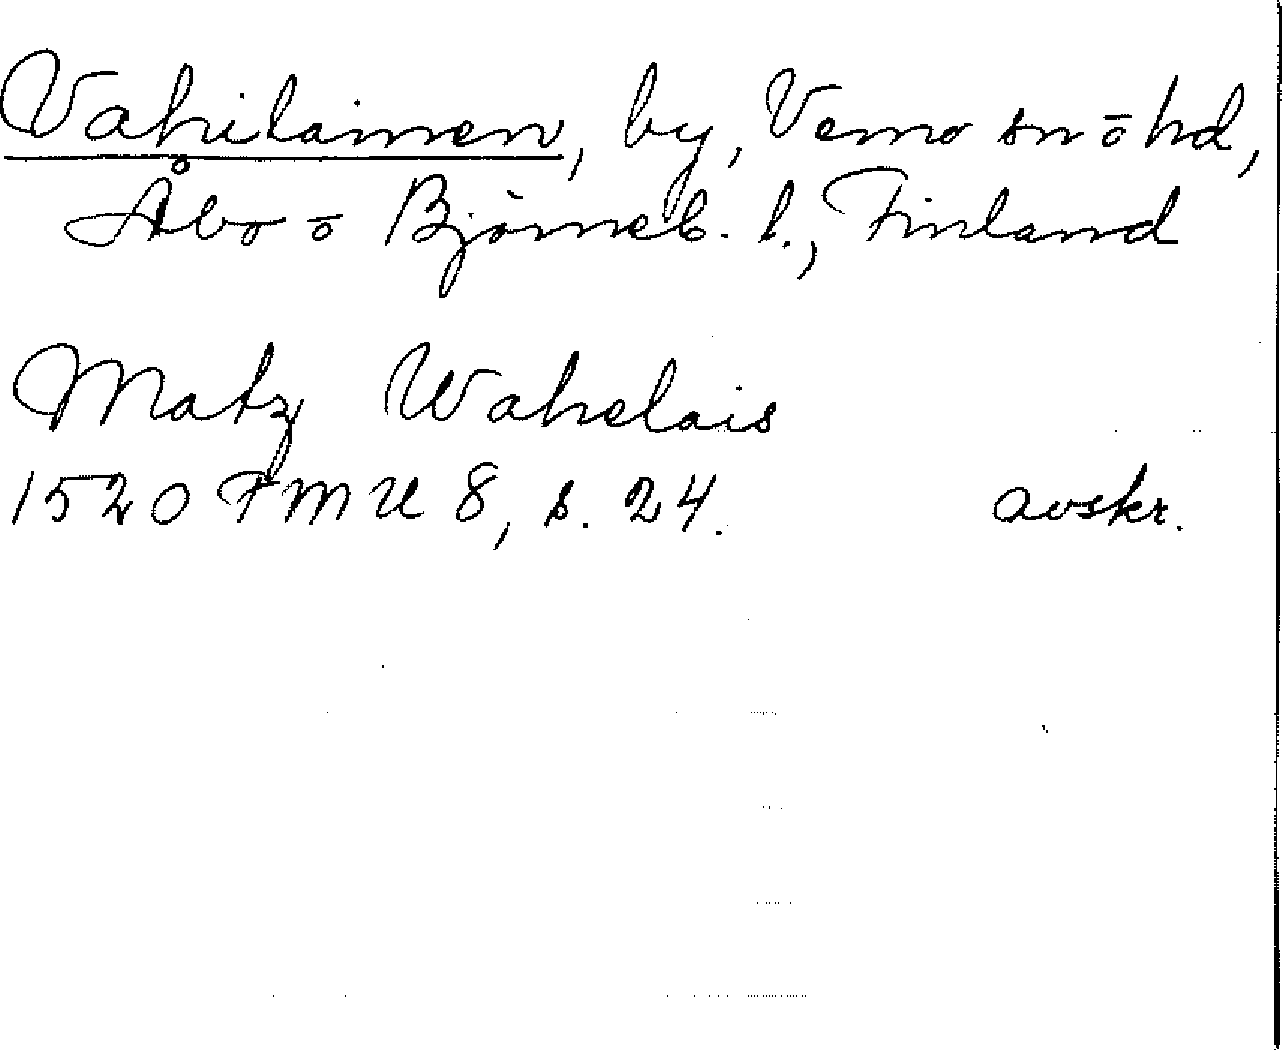 Vahilainen, by, Vemo sn ō hd,
Åbo ō Björneb. l., Finland
Matz Wahelais
1520 FMU 8, s. 24. avskr.